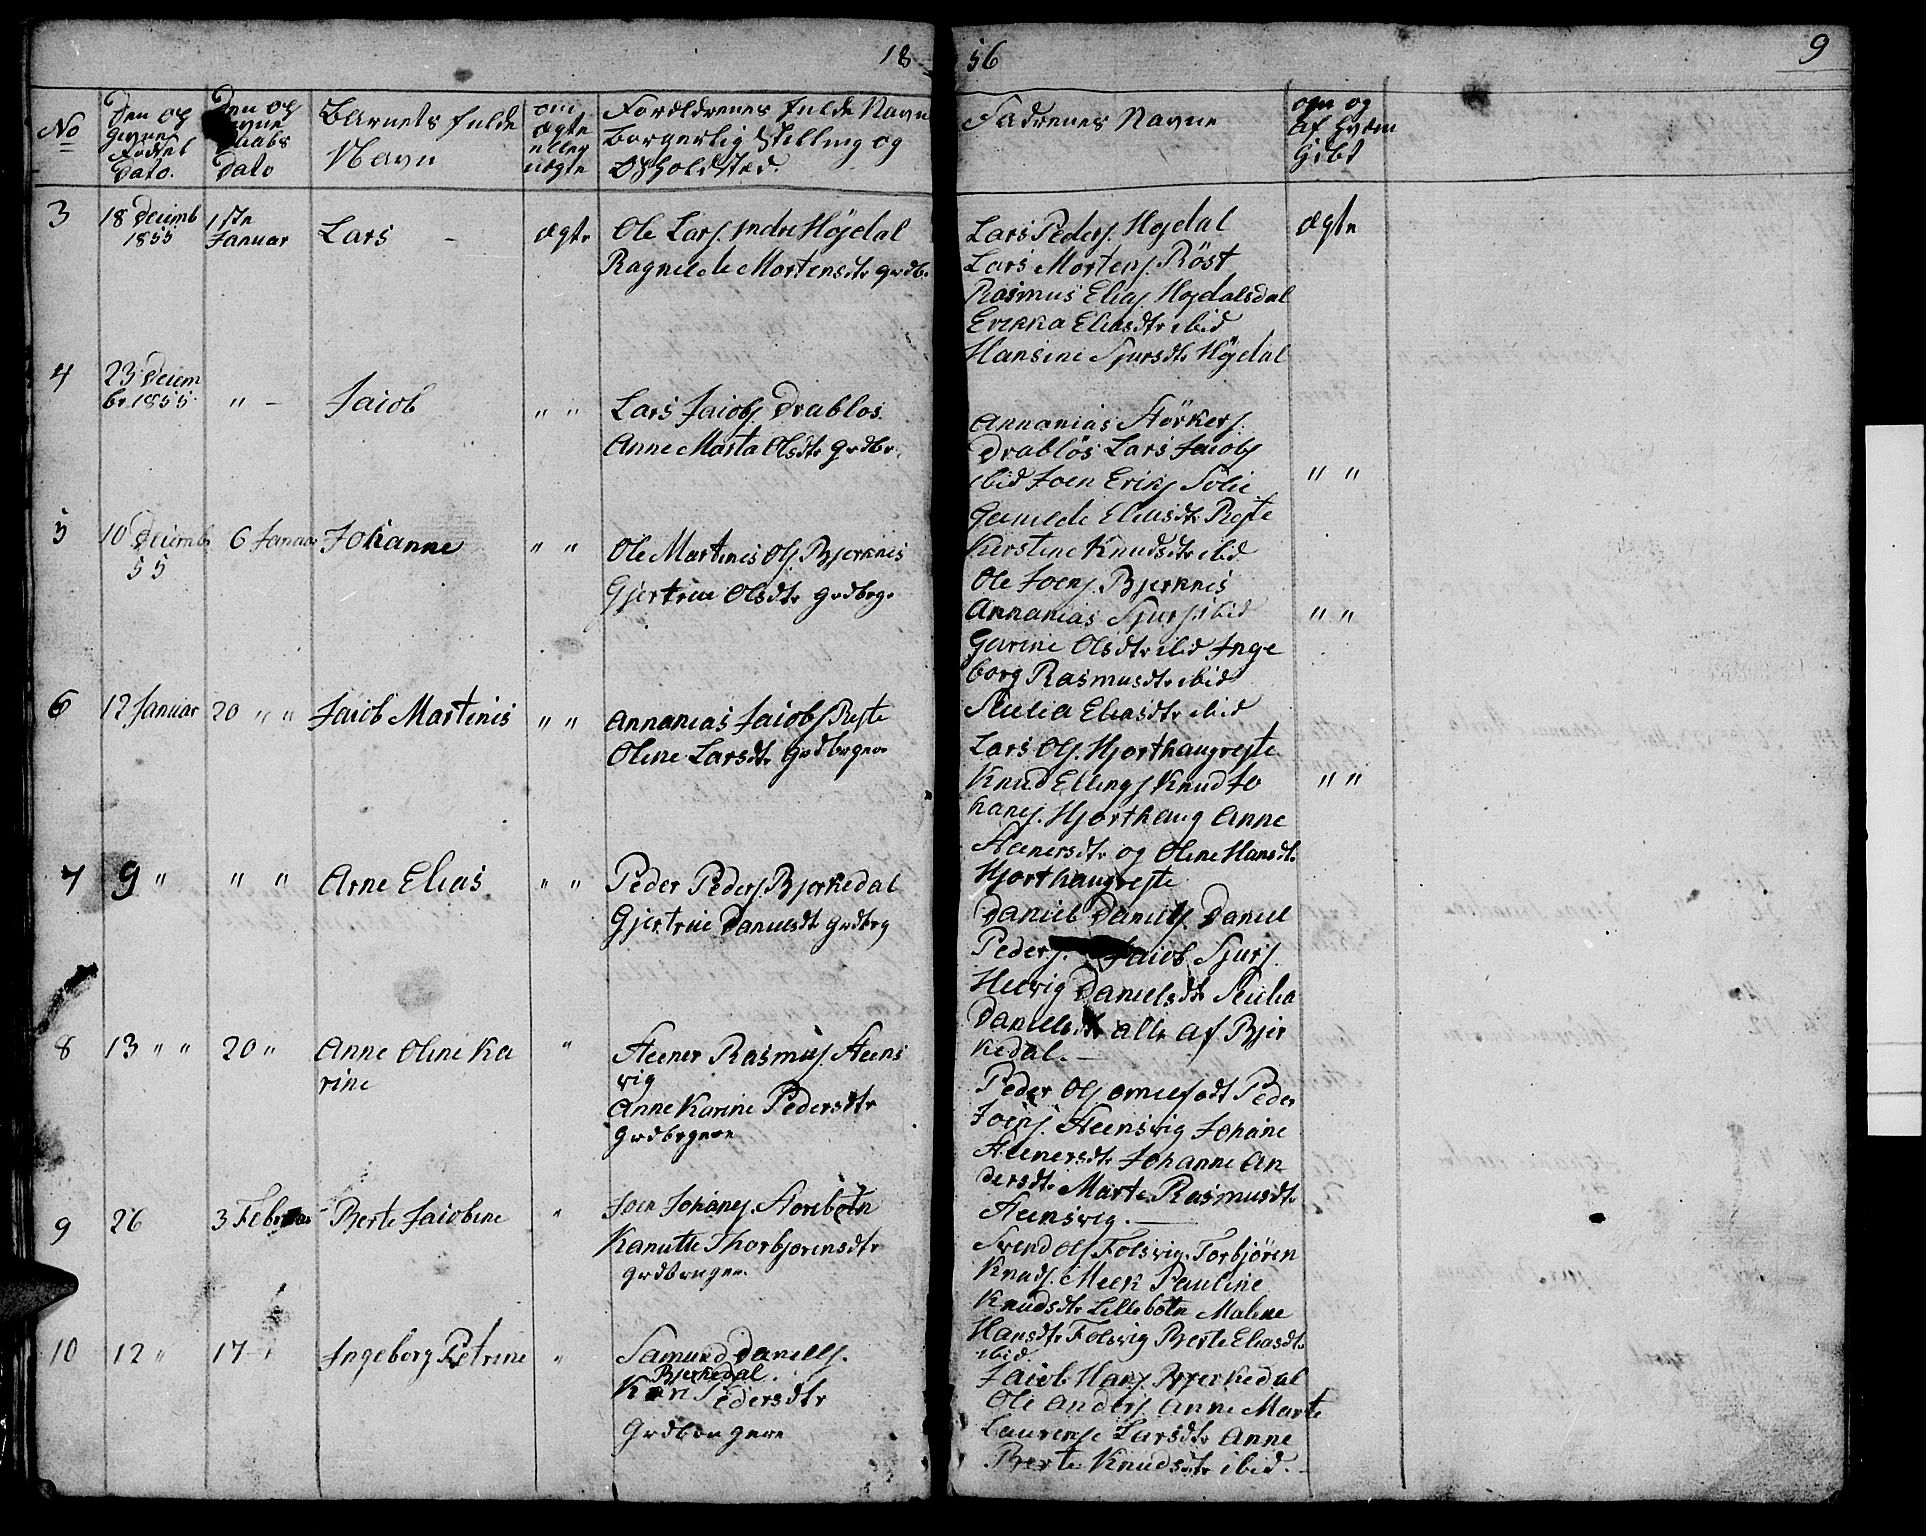 18 56 9
No
Den op
givne
Fødsel
Dato.
Den op
givne
Daabs
Dato
Barnets fulde
Navn
om
ægte
eller
uægte
Forældrenes fulde Navn
borgerlig Stilling og
Opholdsted.
Fadrenes Navne
om og
af hvem
Gibt
3
18 Decemb
1855
1ste
Januar
Lars
ægte
Ole Lars. indre Höjdal
Ragnilde Mortensdtr grdbr
Lars Peders. Höjdal
Lars Mortens. Röst
Rasmus Elias. Höjdalsdal
Erikka Eliasdtr ibid
Hansine Sjursdtr Höjdal
ægte
4
23 Decem
br 1855
" -
Jacob
" "
Lars Jacobs. Drablos
Anne Marta Olsdtr grdbr.
Annanias Störkers.
Drablös Lars Jacobs
ibid Joen Eriks Solie
Gunilde Eliasdtr Reste
Kirstine Knudsdtr ibid
" "
5
10 Decemb
55
6 Januar
Johanne
" "
Ole Martinis Ols. Bjerknis
Gjertrine Olsdtr grdbrg.
Ole Joens. Bjerknis
Annanias Sjurs. ibid
Gurine Olsdtr ibid Inge
borg Rasmusdtr ibid
Eliasdtr ibid
" "
6
12 Januar
20 " "
Jacob Martinis
" "
Annanias Jacobs Reste
Oline Larsdtr grdbrgere
Lars Ols. Hjorthaugreste
Knud Ellings Knud Jo
hans. Hjorthaug Anne
Steenersdtr og Oline Hansdtr
Hjorthaugreste
" "
7
9 "
" "
Arne Elias
" "
Peder Peders. Bjorkedal
Gjertrine Danielsdt grdbrg
Daniel Daniels. Daniel
Peders. Jacob Sjurs.
Helvig Danielsdtr
Danielsdtr alle af Bjer
kedal.
8
13 " "
20 "
Anne Oline Ka
rine
"
Steener Rasmus. Steens
vig
Anne Karine Pedersdtr
Grdbrgere
Peder Ols Peder
Joens. Steensvig Johane
Steenersdtr Johanne An
dersdtr Marte Rasmusdtr
Steensvig.
9
26
3 Februar
Berte Jacobine
"
Joen Johans. Storebotn
Kanutte Thorbjorensdtr
grdbrugere.
Svend Ols Folsvig. Torbjören
Knuds. Meek Pauline
Knudsdtr Lillebotn Malene
Hansdtr Folsvig Berte Eliasdtr
ibid.
10
12 "
17
Ingeborg Petrine
"
Samund Daniels.
Bjerkedal.
Kari Pedersdtr
Grdbrugere
Jacob Hans. Bjerkedal
Ole Anders Anne Marte
Laurense Larsdtr Anne
Berte Knudsdtr ibid.